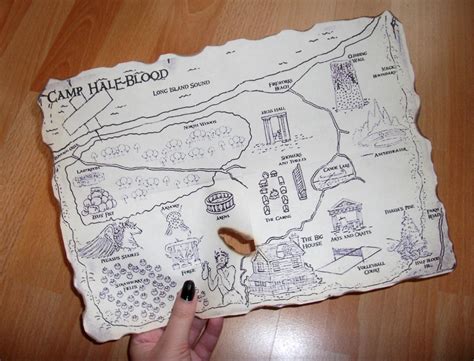 CAMP HALF-BLOOD
LONG ISLAND SOUND
FIREWORKS
BEACH
CLIMBING
WALL
BOUNDARY
NORTH WOODS
MESS HALL
SHOWERS
AND TOILETS
CANOE LAKE
AMPHITHEATER
ARMORY
ARENA
THE CABINS
PEGASUS STABLES
FORGE
THE BIG
HOUSE
ARTS AND CRAFTS
THALIA'S PINE
FARM
ROAD
STRAWBERRY
FIELDS
VOLLEYBALL
COURT
HALF BLOOD
HILL